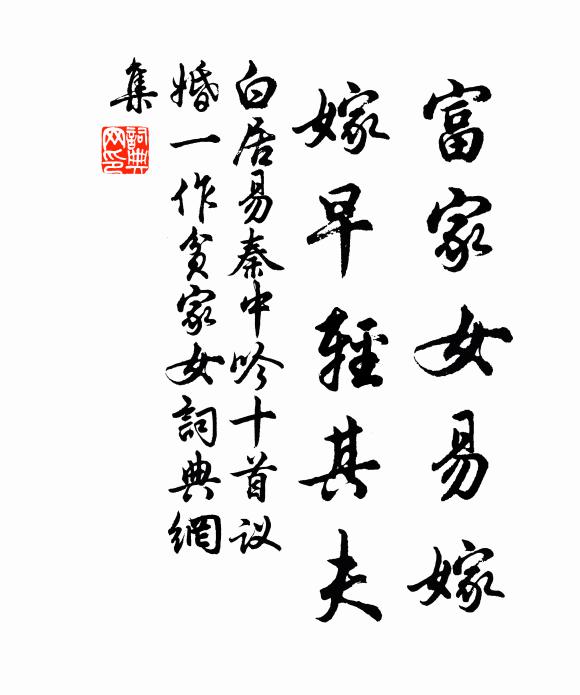 富家女易嫁
嫁早輕其夫
白居易秦中吟十首议
婚一作贫家女詞典網
集
詞典
网印